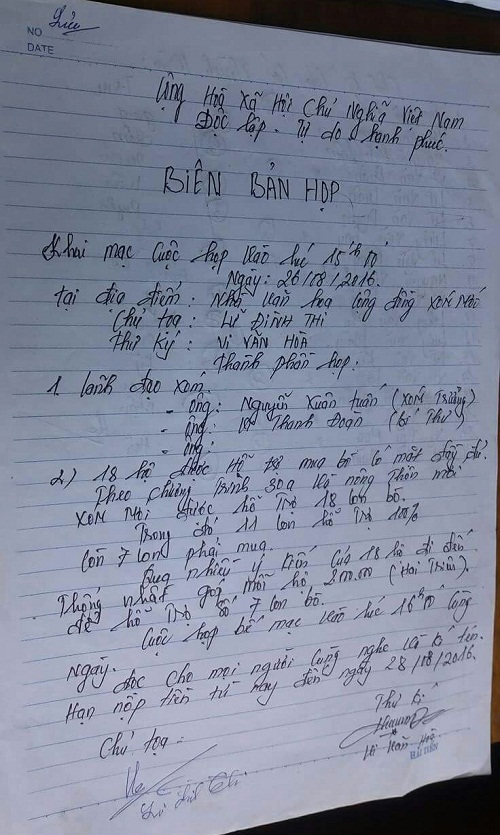 NO
DATE
Cộng Hoà Xã Hội Chủ Nghĩa Việt Nam
Độc lập - Tự do - hạnh phúc.
BIÊN BẢN HỌP
Khai mạc Cuộc họp vào lúc 15h00
Ngày: 26/08/2016.
tại địa điểm: Nhà văn hoá Cộng đồng xóm
Chủ toạ: Lữ ĐÌNH THI
Thư Ký: Vi VĂN HOÀ
Thành phần họp:
1. lãnh đạo xóm.
- ông: Nguyễn Xuân tuấn (xóm Trưởng)
- ông: Thanh Đoạn (bí Thư)
- ông:
2) 18 hộ được Hỗ trợ mua bò có mặt đầy đủ.
Theo chương Trình 30a và nông Thôn mới
xóm được hỗ Trợ 18 con bò.
Trong đó 11 con hỗ Trợ 100%
Còn 7 con phải mua.
Qua nhiều ý kiến của 18 hộ đi đến
Thống nhất góp mỗi hộ 200.00 (Hai Triệu).
để hỗ Trợ số 7 con bò.
Cuộc họp bế mạc vào lúc 16h00 cùng
Ngày.
đọc cho mọi người cùng nghe và kí tên.
Hạn nộp tiền từ nay đến ngày 28/08/2016.
Thư kí
Chủ tọa:
Vi Văn Hoà
HẢI TIẾN